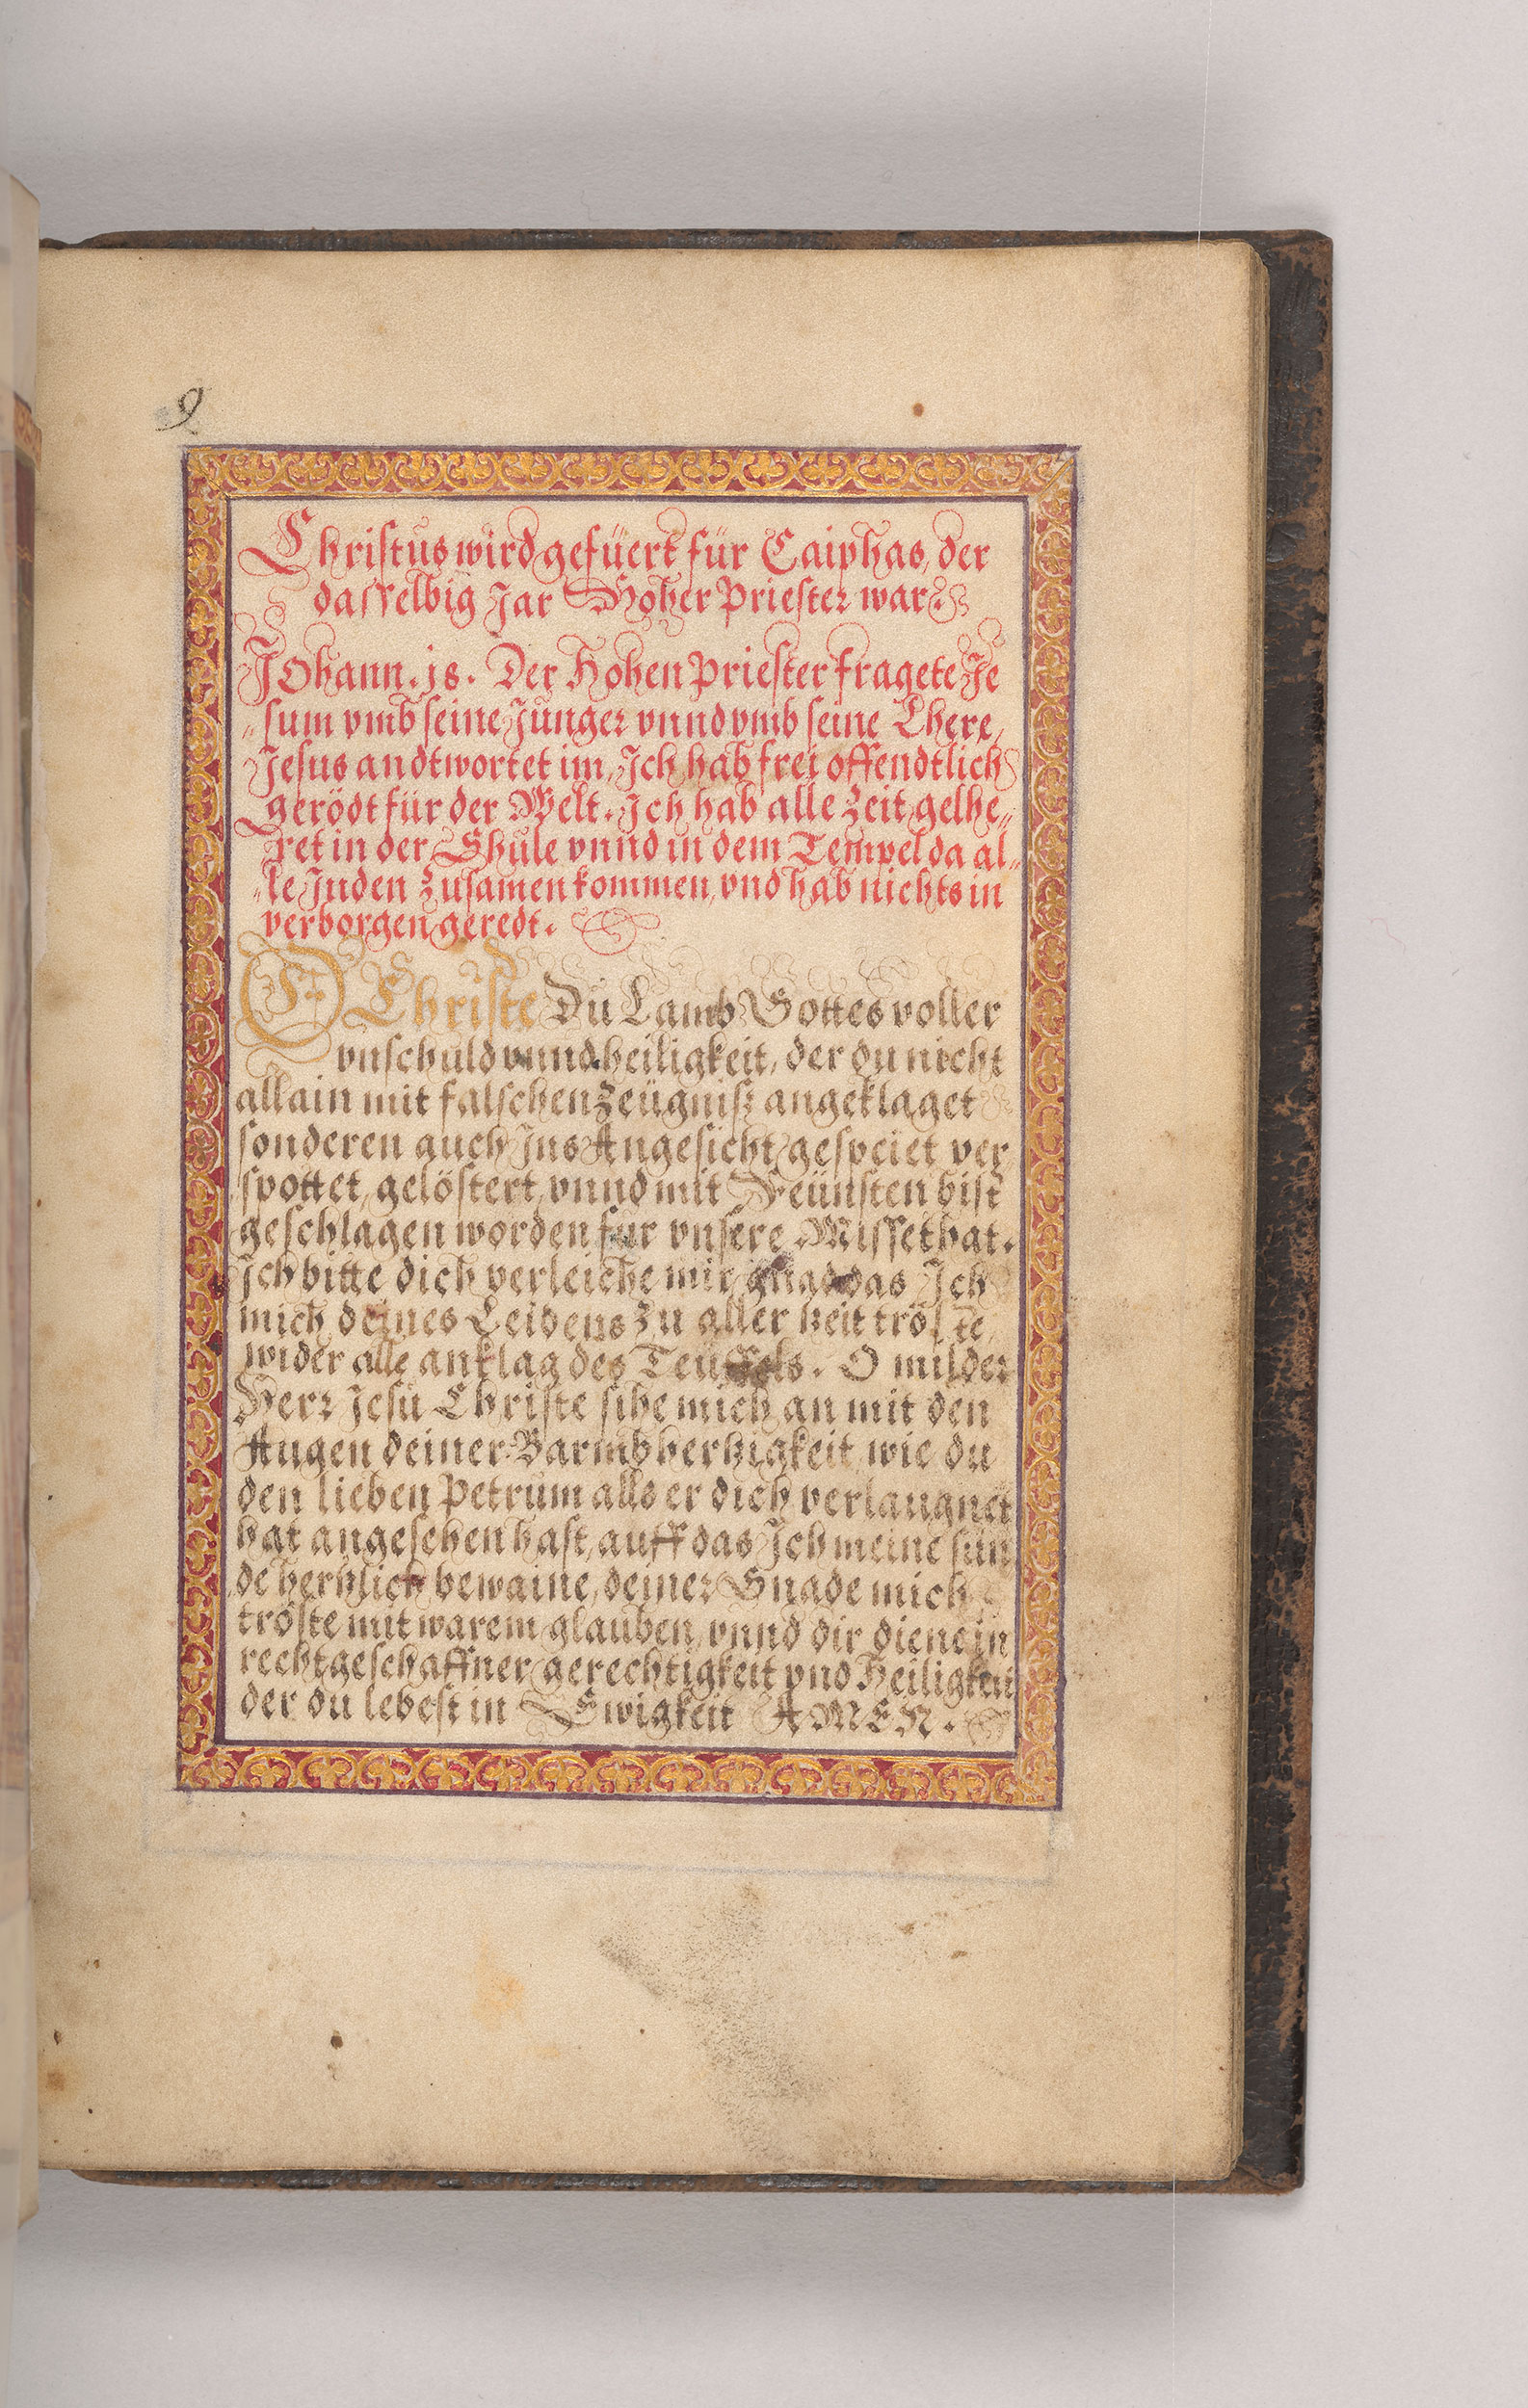 9
Christus wird gefüert für Caiphas, der
dasselbig Jar Hoher Priester war.
JOhann. j8. Der Hohen Priester fragete Je
sum vmb seine Jünger vnnd vmb seine Lhere,
Jesus andtwortet im, Ich hab frei offendtlich
gerödt für der Welt. Ich hab alle Zeit gelhe„
ret in der Shule vnnd in dem Tempel da al„
„le Juden Zusamen kommen, vnd hab nichts in
verborgen geredt.
O Christe Du Lamb Gottes voller
vnschuld vnnd heiligkeit, der du nicht
allain mit falschen Zeügniß angeklaget
sonderen auch Ins Angesicht gespeiet ver
spottet, gelöstert, vnnd mit Feünsten bist
geschlagen worden für vnsere Missethat.
Ich bitte dich verleiche mir gnad das Ich
mich deines Leidens zu aller zeit tröste,
wider alle anklag des Teüffels. O milder
Herr Jesu Christe sihe mich an mit den
Augen deiner Barmbhertzigkeit, wie du
den lieben Petrum alls er dich verlaugnet
hat angesehen hast, auff das Ich meine sün
de hertzlich bewaine, deiner Gnade mich
tröste mit warem glauben, vnnd dir diene in
rechtgeschaffner gerechtigkeit vnd Heiligkeit
der du lebest in Ewigkeit AMEN.